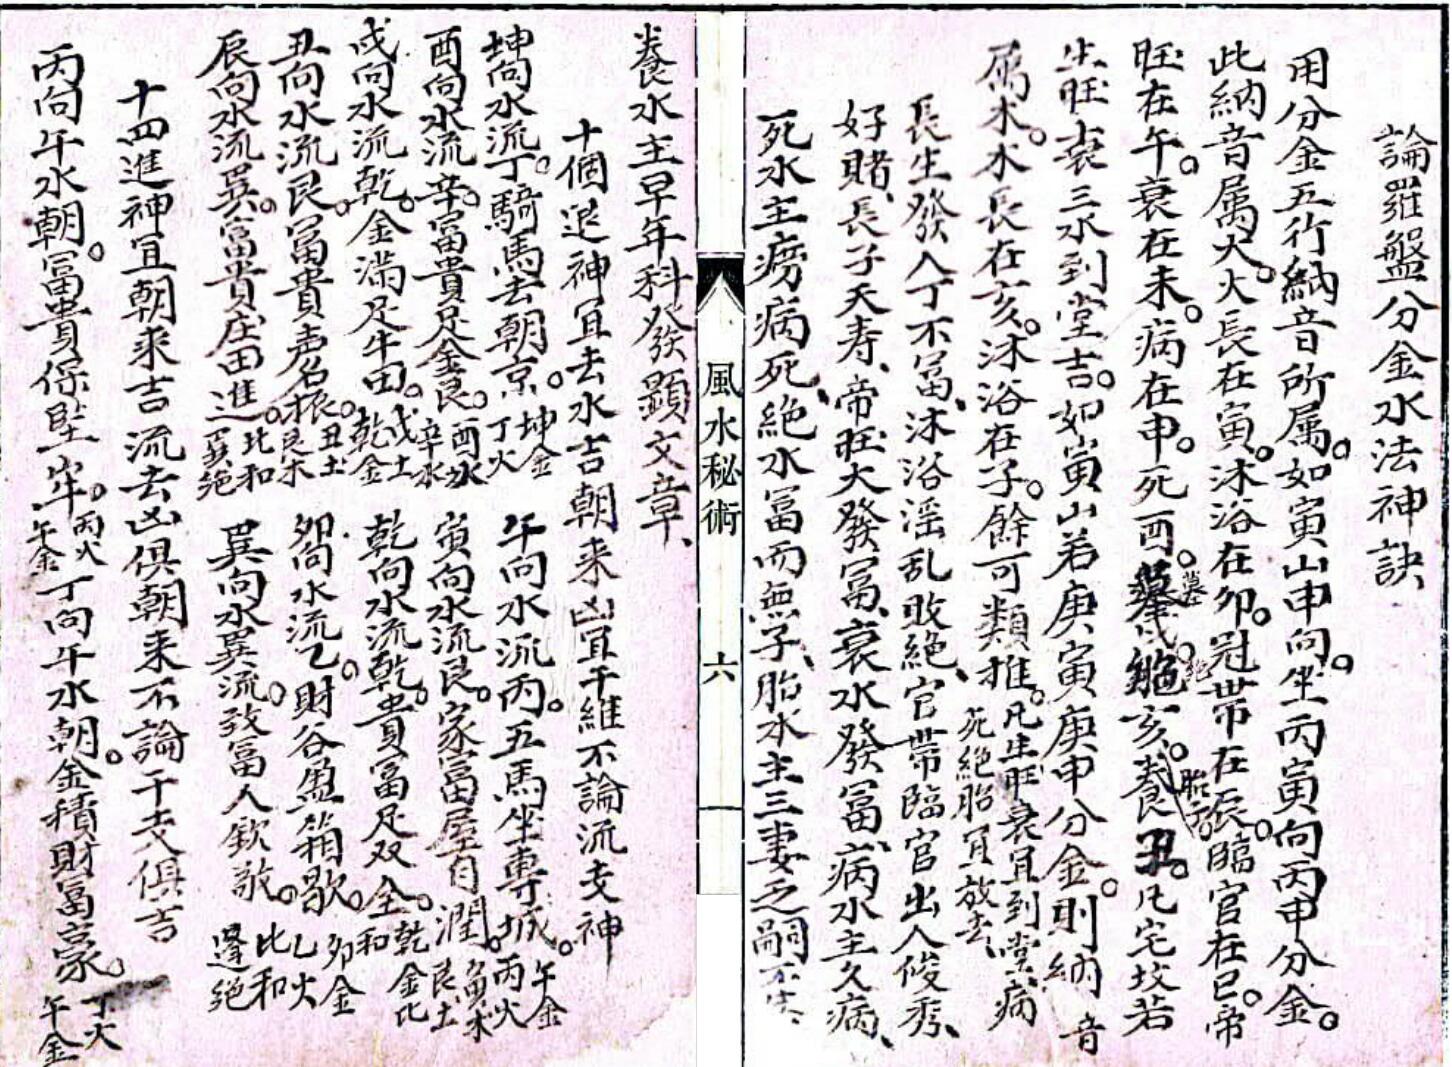 論羅盤分金水法神訣
用分金五行納音所属。如寅山申向。坐丙寅向丙申分金。
此納音属火。火長在寅。沐浴在卯。冠帶在辰。臨官在巳。帝
旺在午。衰在未。病在申。死酉。墓戌。絕亥。胎子。養丑。凡宅坟若
生旺衰三水到堂吉。如寅山若庚寅庚申分金。則納音
属木。木長在亥。沐浴在子。餘可類推。凡生旺衰宜到堂、病
死絕胎宜放去、
長生發人丁不冨、沐浴淫乱敗絕、官帶臨官出人俊秀、
好賭、長子天寿、帝旺大發冨、衰水發冨、病水主久病、
死水主癆病死、絕水冨而無子、胎水主三妻乏嗣
風水秘術
六
養水主早年科發顕文章、
十個退神宜去水吉朝来凶宜干維不論流支神
坤向水流丁。騎馬去朝京。坤金丁火 午向水流丙。五馬坐專城。午金丙火
酉向水流辛。冨貴足金艮。酉水辛水 寅向水流艮。家冨屋自潤。寅木艮土
戌向水流乾。金滿足牛田。戊土乾金 乾向水流乾。貴冨足双全。乾金比和
丑向水流艮。冨貴声名振。丑土艮木 卯向水流乙。財谷盈箱歇。卯金乙火
辰向水流巽。冨貴庄田進。比和巽絕 巽向水巽流。致冨人欽敬。比和逢絕
十四進神宜朝来吉流去凶俱朝来不論干支俱吉
丙向午水朝。冨貴保堅牢。丙火午金 丁向午水朝。金積財冨豪。丁火午金